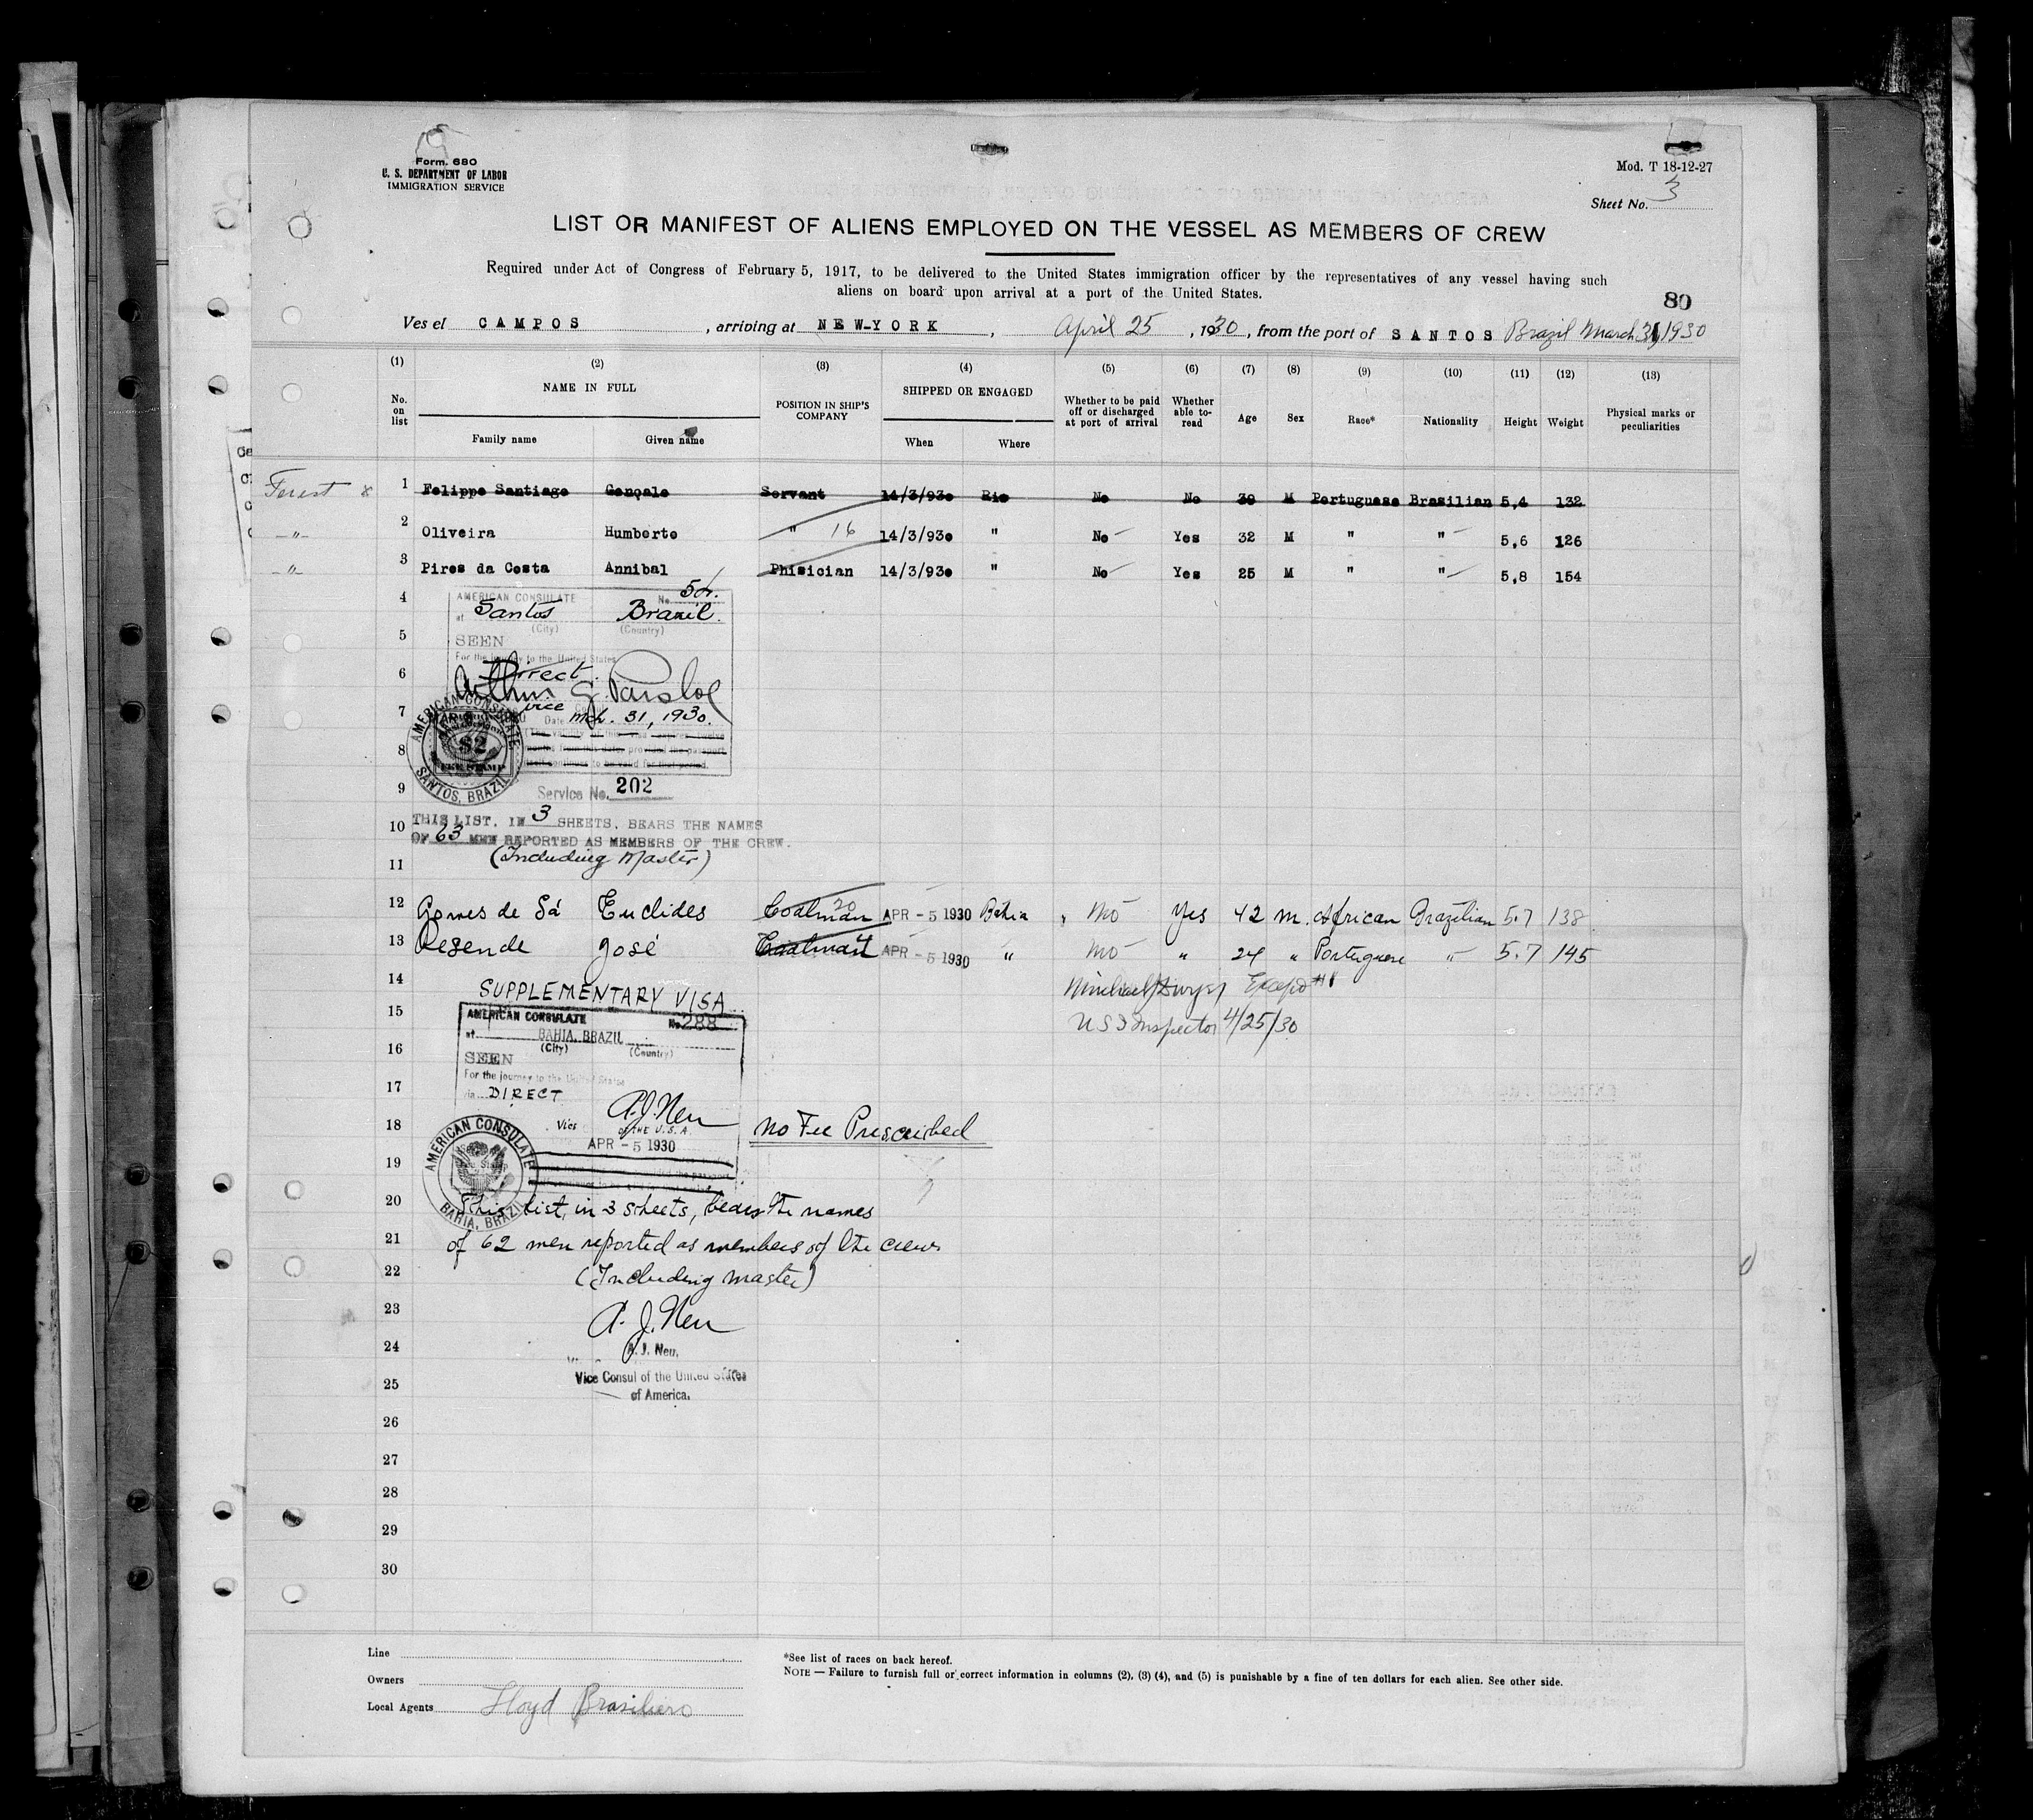 Form. 680
U. S. DEPARTMENT OF LABOR
IMMIGRATION SERVICE
Mod. T 18-12-27
Sheet No. 3
LIST OR MANIFEST OF ALIENS EMPLOYED ON THE VESSEL AS MEMBERS OF CREW
Required under Act of Congress of February 5, 1917, to be delivered to the United States immigration officer by the representatives of any vessel having such
aliens on board upon arrival at a port of the United States.
80
Ves el CAMPOS, arriving at NEW-YORK, April 25, 1930, from the port of SANTOS Brazil March 31, 1930
(1) (2) (3) (4) (5) (6) (7) (8) (9) (10) (11) (12) (13)
No. on list
NAME IN FULL
Family name Given name
POSITION IN SHIP'S COMPANY
SHIPPED OR ENGAGED
When Where
Whether to be paid off or discharged at port of arrival
Whether able to-read
Age Sex Race* Nationality Height Weight
Physical marks or peculiarities
1 Felippe Santiago Gonçalo Servant 14/3/930 Rio No No 39 M Portuguese Brasilian 5,4 132
-"- 2 Oliveira Humberto " 16 14/3/930 " No Yes 32 M " " 5,6 126
-"- 3 Pires da Costa Annibal Phisician 14/3/930 " No Yes 25 M " " 5,8 154
4
AMERICAN CONSULATE No.
at Santos Brazil.
(City) (Country)
5
SEEN
For the journey to the United States
6
Direct.
Arthur G. Parsloe
7
vice
Date Mch. 31, 1930.
8
AMERICAN CONSULATE
SANTOS, BRAZIL
$2
FEE STAMP
9
Service No. 202
10 THIS LIST, IN 3 SHEETS, BEARS THE NAMES
OF 63 MEN REPORTED AS MEMBERS OF THE CREW.
11 (Including Master)
12 Gomes de Sá Euclides Coalman 20 APR - 5 1930 Bahia No Yes 42 M. African Brazilian 5.7 138
13 Resende José Coalman APR - 5 1930 " No " 24 " Portuguese " 5.7 145
14 SUPPLEMENTARY VISA
Except #1
15
AMERICAN CONSULATE No 288
at BAHIA, BRAZIL
(City) (Country)
U S I Inspector 4/25/30
16
SEEN
For the journey to the United States
17
via DIRECT
A. J. Neu
18
Vice OF THE U.S.A.
No Fee Prescribed
APR - 5 1930
AMERICAN CONSULATE
BAHIA, BRAZIL
19
20 This list, in 3 sheets, bears the names
21 of 62 men reported as members of the crew
22 (Including master)
23 A. J. Neu
24 A. J. Neu,
25 Vice Consul of the United States
of America.
26
27
28
29
30
Line
Owners
Local Agents Lloyd Brasileiro
*See list of races on back hereof.
NOTE — Failure to furnish full or correct information in columns (2), (3) (4), and (5) is punishable by a fine of ten dollars for each alien. See other side.